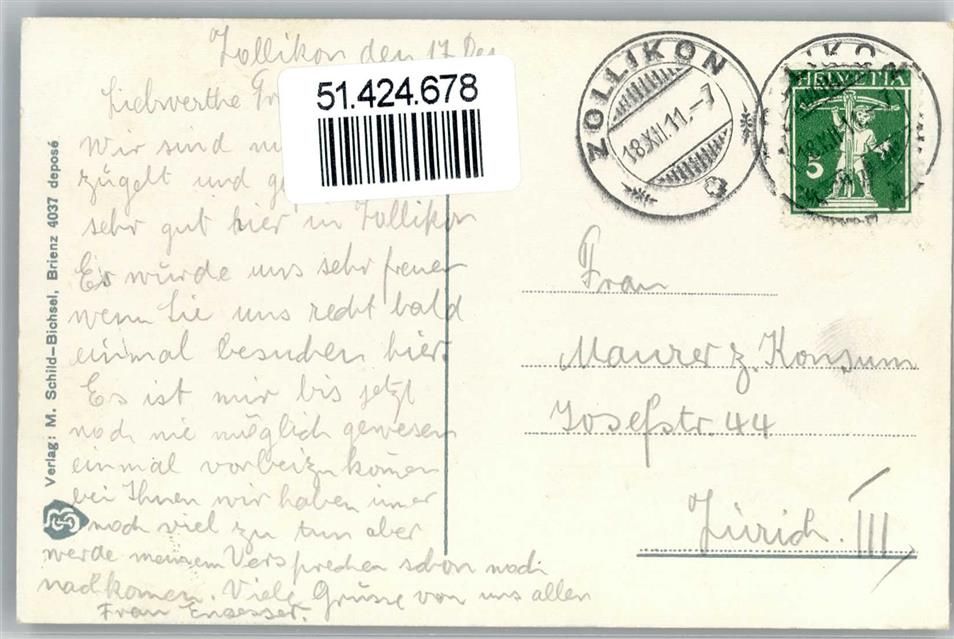 Zollikon den 17. Dez
51.424.678
Liebwerthe
Wir sind
zügelt und
sehr gut hier in Zollikon
Es würde uns sehr freuen
wenn Sie uns recht bald
einmal besuchen hier.
Es ist mir bis jetzt
noch nie möglich gewesen
einmal vorbeizukomen
bei Ihnen wir haben imer
noch viel zu tun aber
werde meinem Versprechen schon noch
nachkomen. Viele Grüsse von uns allen
Frau
Verlag: M. Schild-Bichsel, Brienz 4037 deposé
ZOLLIKON
18.XII.11.-7
HELVETIA
5
Frau
Maurer z. Konsum
Josefstr. 44
Zürich. III